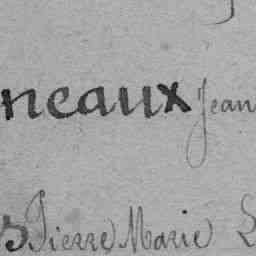 neaux Jean
Pierre Marie